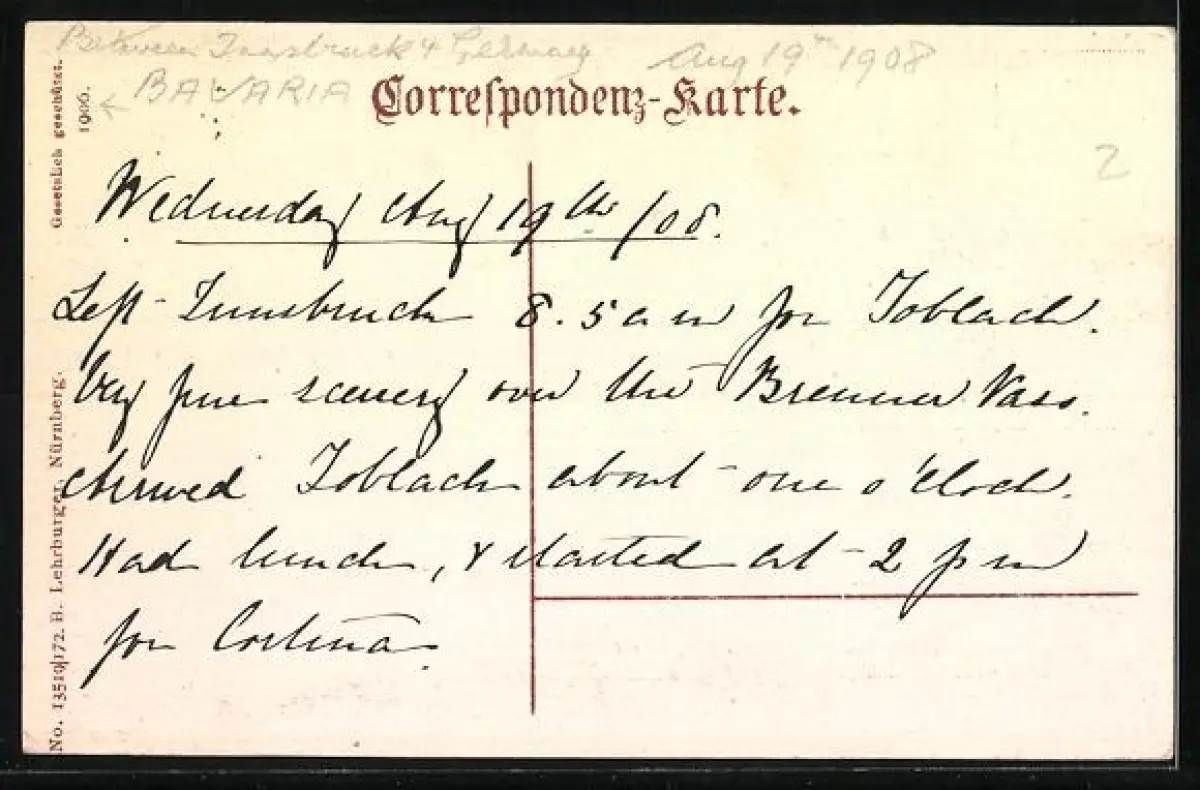 Between Innsbruck & Germany Aug 19th 1908
← BAVARIA
Correspondenz-Karte.
2
Wednesday Aug 19th /08.
Left Innsbruck 8.5 a m for Toblach.
Very fine scenery over the Brenner Pass.
Arrived Toblach about one o'cloch.
Had lunch, & started at 2 p m
for Cortina.
No. 13519/172. B. Lehrburger, Nürnberg. Gesetzlich geschützt.
1906.